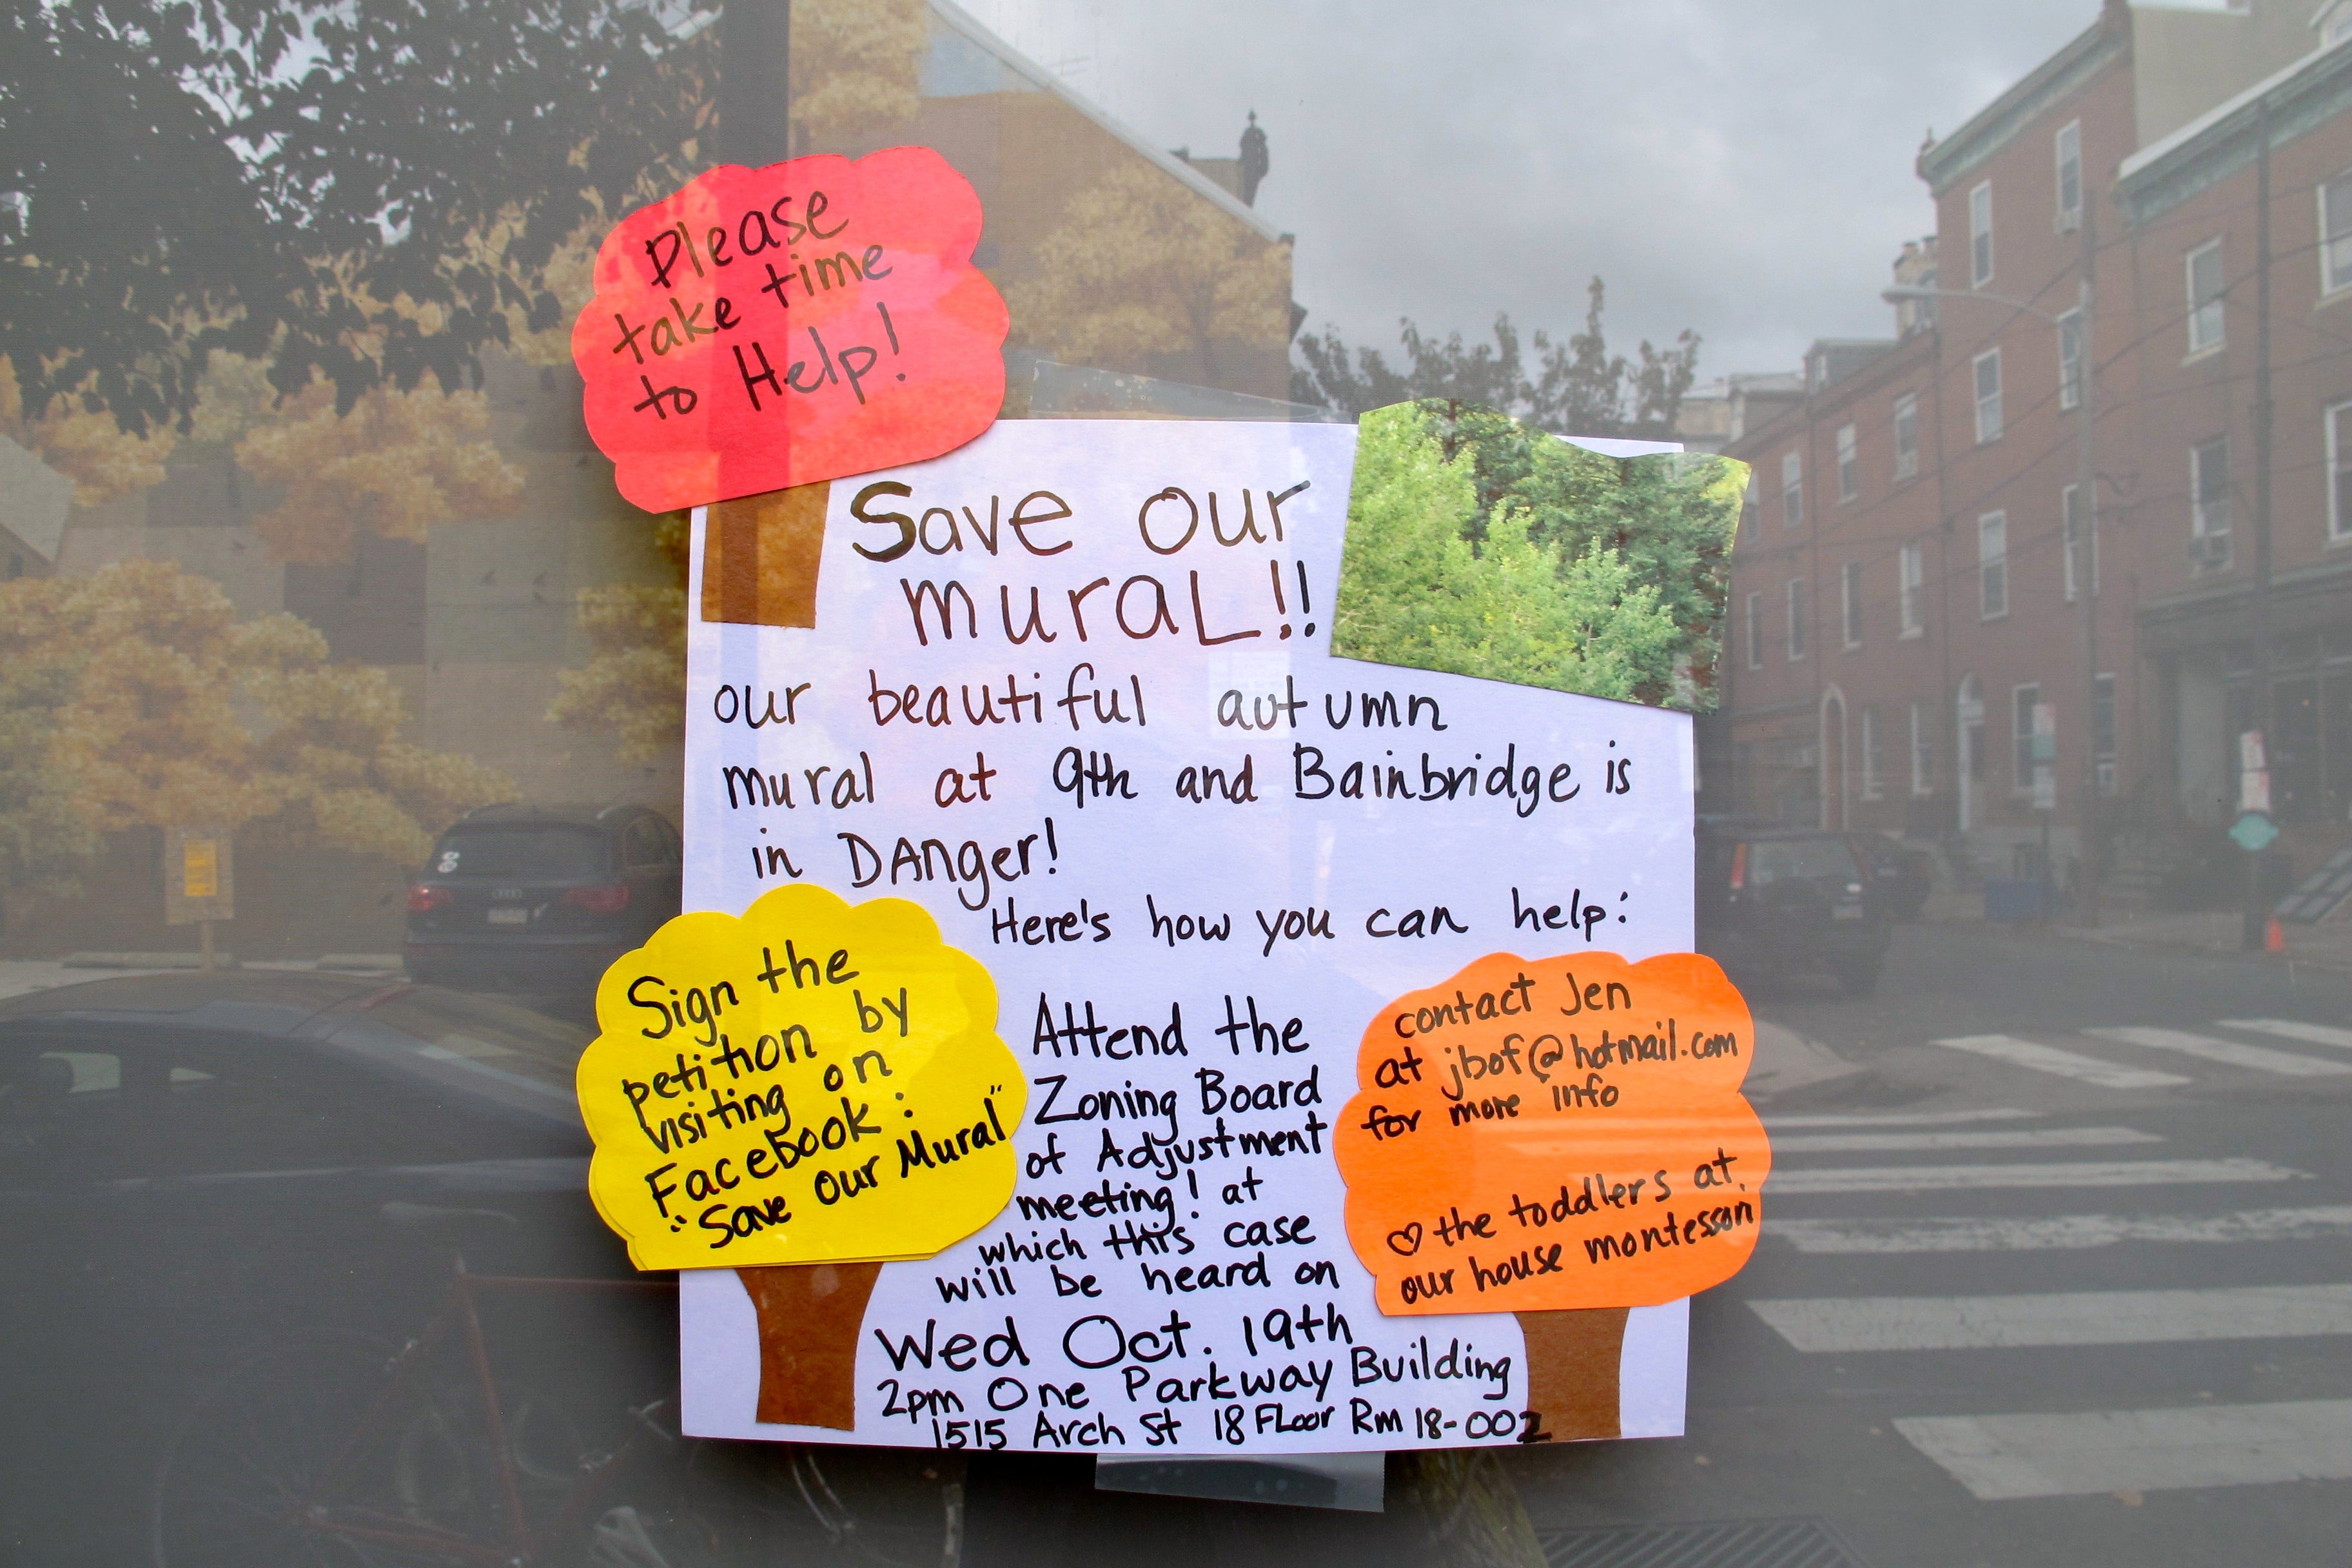 Please
take time
to Help!
Save our
muraL!!
our beautiful autumn
mural at 9th and Bainbridge is
in DAnger!
Here's how you can help:
Sign the
petition by
visiting on
Facebook:
"Save our Mural"
Attend the
Zoning Board
of Adjustment
meeting! at
which this case
will be heard on
Wed Oct. 19th
2pm One Parkway Building
1515 Arch St 18 FLoor Rm 18-002
contact Jen
at jbof@hotmail.com
for more info
♡ the toddlers at
our house montessori